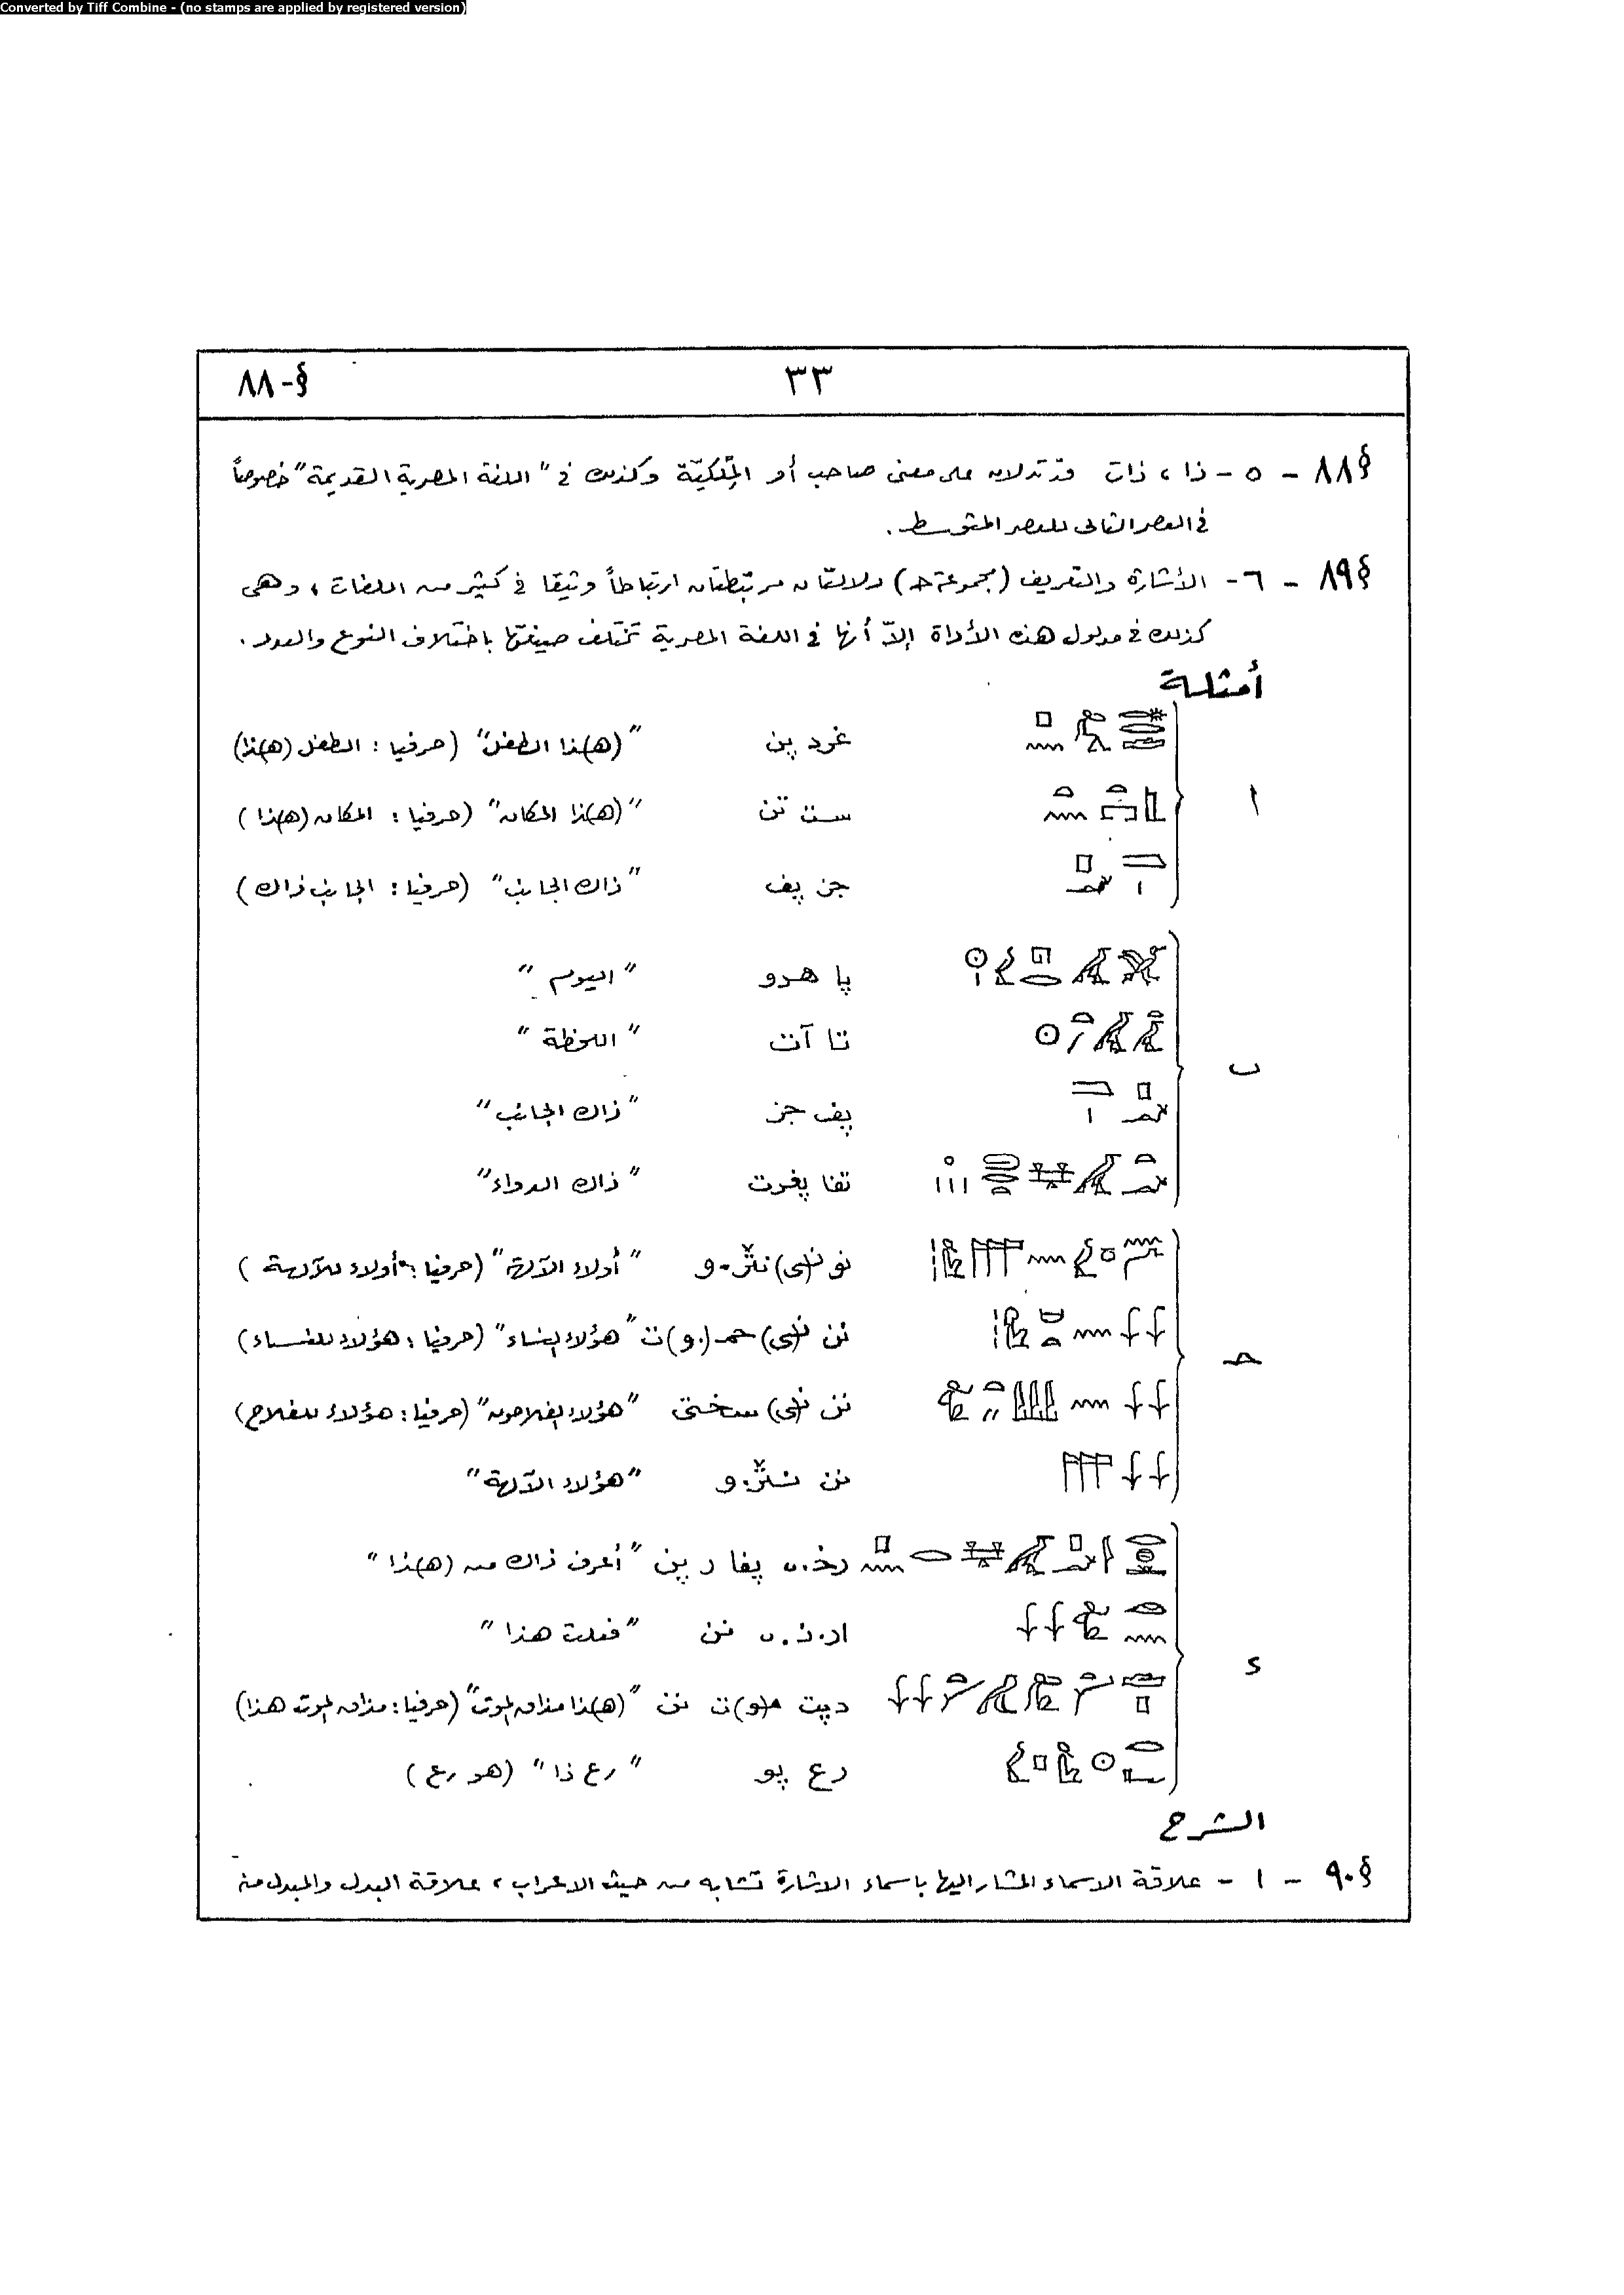 Converted by Tiff Combine - (no stamps are applied by registered version)
§-٨٨
٣٣
§٨٨ - ٥ - ذا ، ذات قد تدلان على معنى صاحب أو المِلْكيّة وكذلك في "اللغة المصرية القديمة" خصوصاً
في العصر التالى للعصر المتوسط .
§٨٩ - ٦ - الأشارة والتعريف (مجموعة حـ) دلالتان مرتبطتان ارتباطاً وثيقا في كثير من اللغات ، وهى
كذلك في مدلول هذه الأداة إلاّ أنها في اللغة المصرية تختلف صيغتها باختلاف النوع والعدد .
أمثلة
ا
غرد پن "(هـ)ذا الطفل" (حرفيا : الطفل (هـ)ذا)
ست تن "(هـ)ذا المكان" (حرفيا : المكان (هـ)ذا )
جز پف "ذاك الجانب" (حرفيا : الجانب ذاك )
ب
پا هرو "اليوم"
تا آت "اللحظة"
پف جز "ذاك الجانب"
تفا پغرت "ذاك الدواء"
حـ
نو ن(ى) نثر.و "أولاء الآلهة" (حرفيا : أولاء للآلهة )
نن ن(ى) حمـ(.و)ت "هؤلاء النساء" (حرفيا : هؤلاء للنساء)
نن ن(ى) سختى "هؤلاء الفلاحون" (حرفيا : هؤلاء للفلاح)
نن نثر.و "هؤلاء الآلهة"
د
رخ.ں پفا ر پن "أعرف ذاك من (هـ)ذا"
ار.ن.ں نن "فعلت هذا"
دپت م(و)ت نن "(هـ)ذا مذاق الموت" (حرفيا : مذاق الموت هذا)
رع پو "رع ذا" (هو رع )
الشرح
§٩٠ - ١ - علاقة الاسماء المشار اليها باسماء الاشارة تشابه من حيث الاعراب ، علاقة البدل والمبدل منه